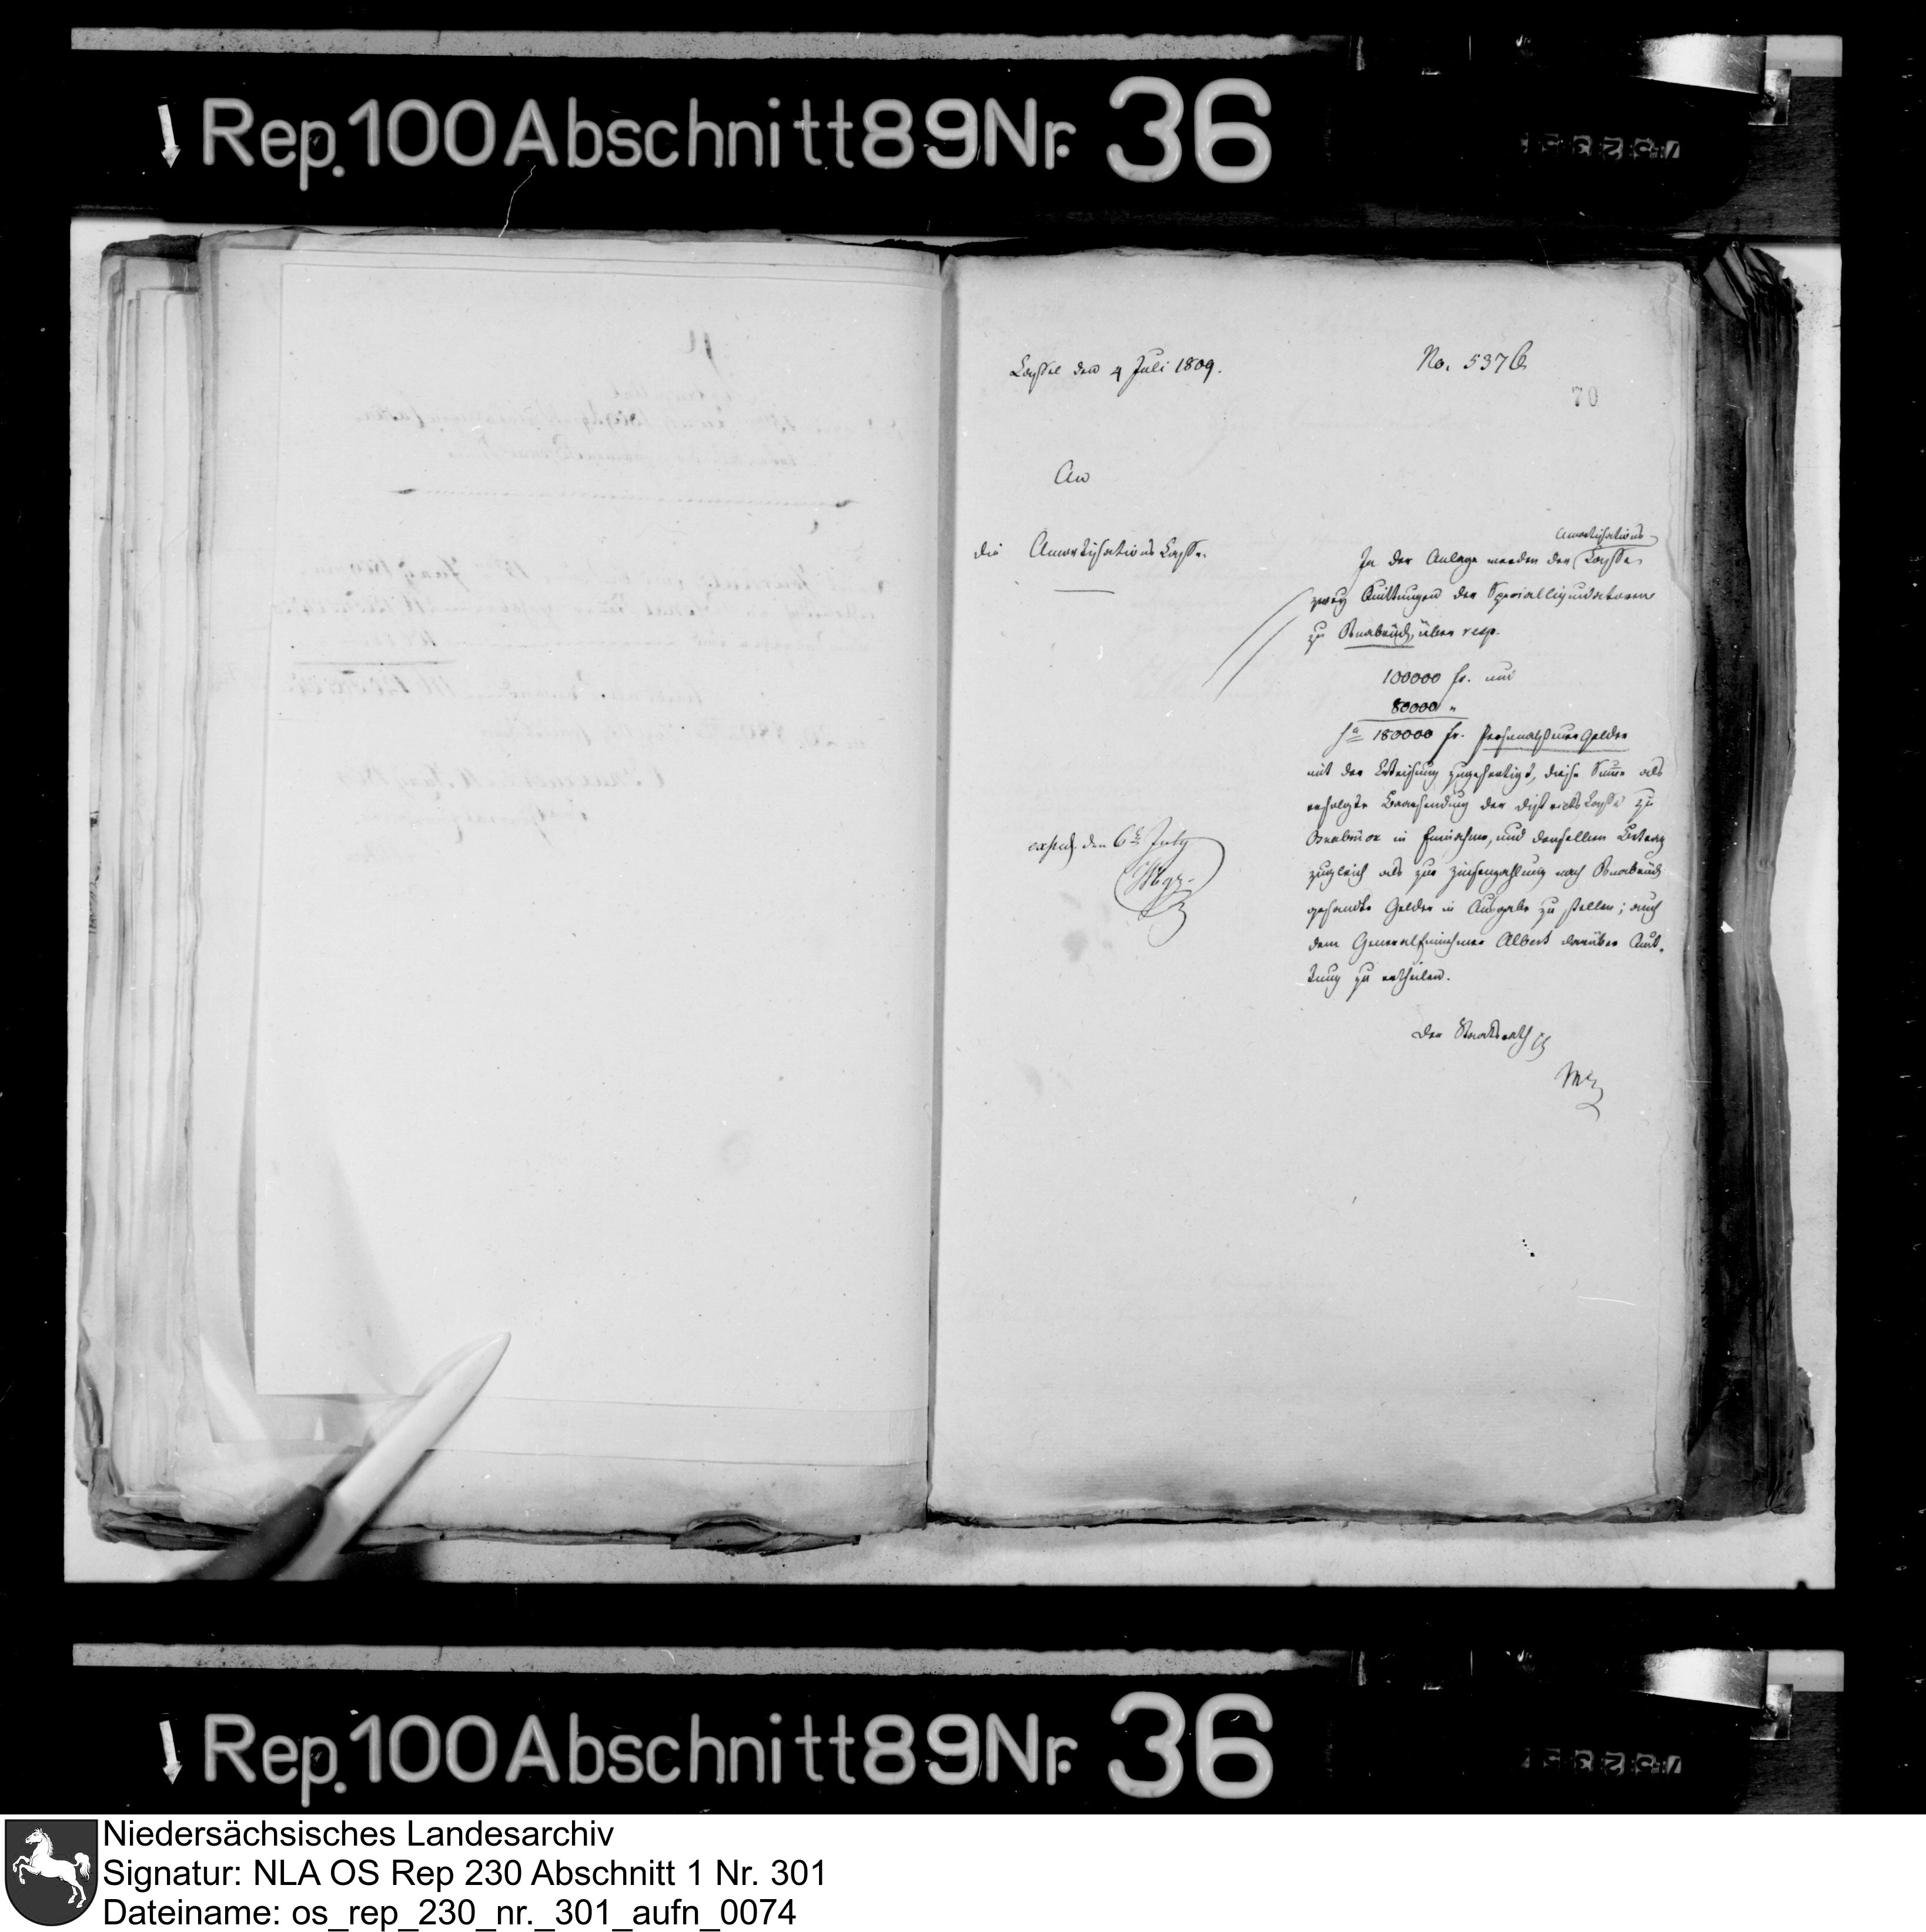 Rep. 100 Abschnitt 89 Nr. 36
Cassel den 4 Juli 1809.
No. 5376
70
An
die Amortisations Casse.
Amortisations
In der Anlage werden der Casse
zwey Quittungen der Specialliquidatoren
zu Osnabrück, über resp.
100000 fr. und
80000 "
Sa 180000 fr. Personalsteuer Gelder
mit der Anweisung zugefertigt, diese Summe als
erfolgte Baarsendung der Districts Casse zu
Osnabrück in Einnahme, und denselben Betrag
zugleich als zur Zinsenzahlung nach Osnabrück
gesandte Gelder in Ausgabe zu stellen; auch
dem Generaleinnehmer Albert darüber Quit-
tung zu ertheilen.
exped. den 6t July
Der Staatsrath
Rep. 100 Abschnitt 89 Nr. 36
Niedersächsisches Landesarchiv
Signatur: NLA OS Rep 230 Abschnitt 1 Nr. 301
Dateiname: os_rep_230_nr._301_aufn_0074